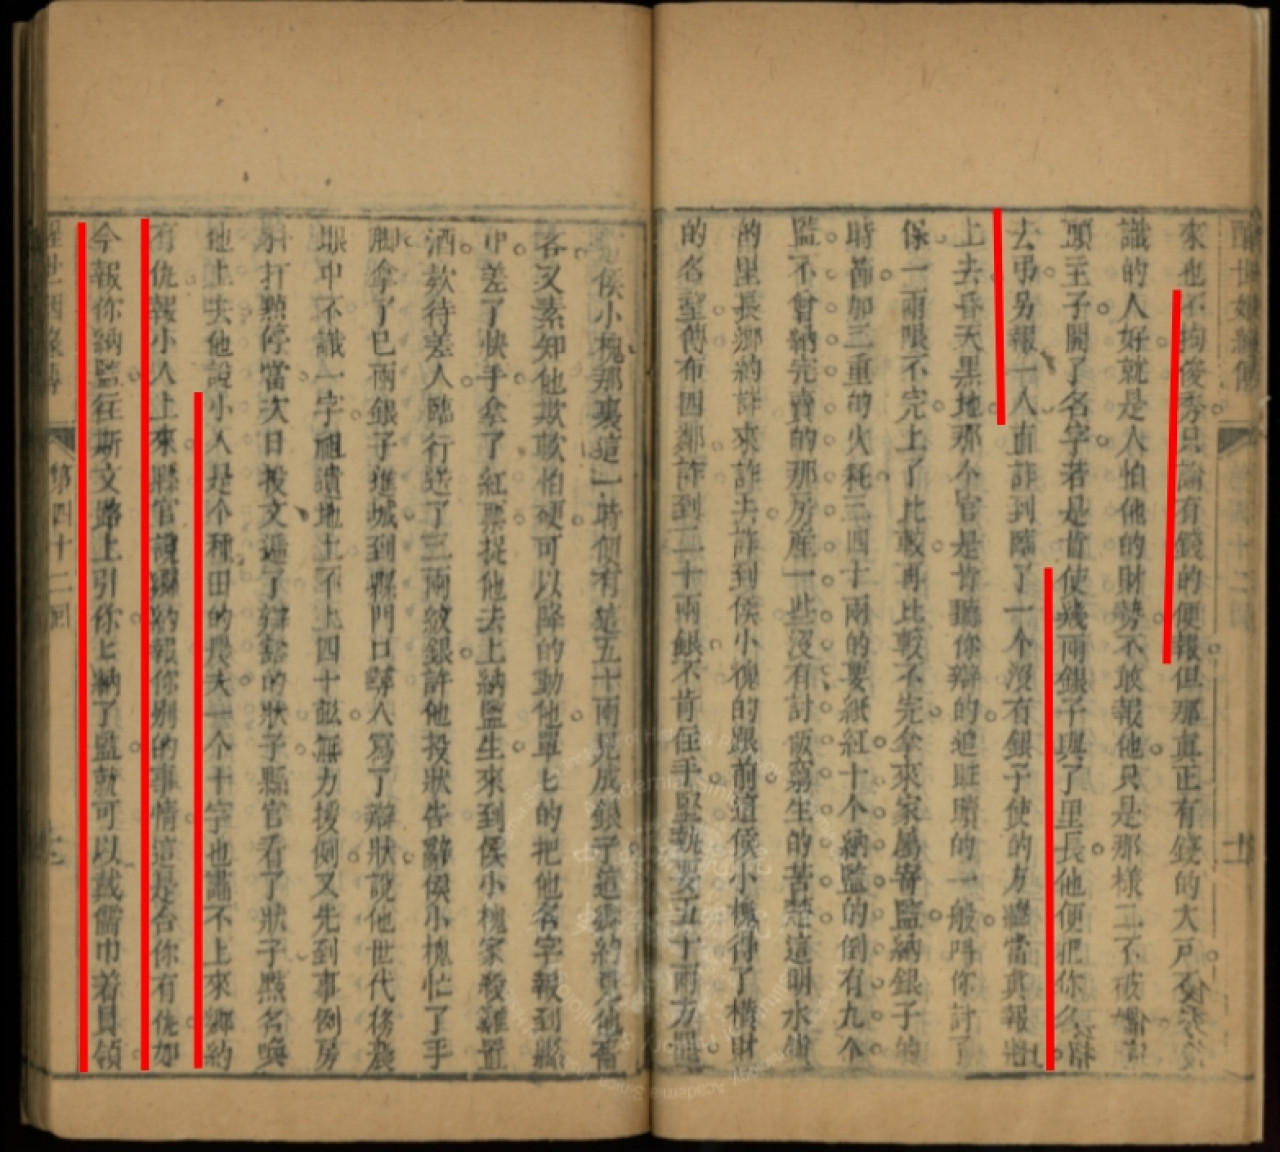 來也不拘俊秀只論有錢的便報但那真正有錢的大戶不
識的人好就是人怕他的財勢不敢報他只是那樣二不破
頭主子開了名字若是肯使幾兩銀子與了里長他便把你
去弔另報一人直詐到臨了一个沒有銀子使的方纔當真報將
上去昏天黑地那个官是肯聽你辯的追贓贖的一般叫你討了
保一兩限不完上了比較再比較不完拿來家屬寄監納銀子的
時節加三重的火耗三四十兩的要紙紅十个納監的倒有九个
監不曾納完賣的那房產一些沒有討飯窮生的苦楚這明水
的里長鄉約詐來詐去詐到侯小槐的跟前這侯小槐得了橫財
的名聲傳布四鄰詐到二十兩銀不肯住手堅執要五十兩方
侯小槐那裏這一時便有這五十兩見成銀子這鄉約見他
吝又素知他欺軟怕硬可以降的動他單七的把他名字報到縣
中差了快手拿了紅票捉他去上納監生來到侯小槐家殺雞置
酒款待差人臨行送了三兩紋銀許他投狀告辭侯小槐忙了手
腳拿了已兩銀子進城到縣門口尋人寫了辯狀說他世代務農
眼中不識一字祖遺地土不上四十畝無力援例又先到事例房
打點停當次日投文遞了辯豁的狀子縣官看了狀子點名喚
他上去他說小人是个種田的農夫一个十字也畫不上來鄉約
有仇報小人上來縣官說鄉約報你別的事情這是合你有仇如
今報你納監往斯文路上引你七納了監就可以戴儒巾着員領
第四十二回